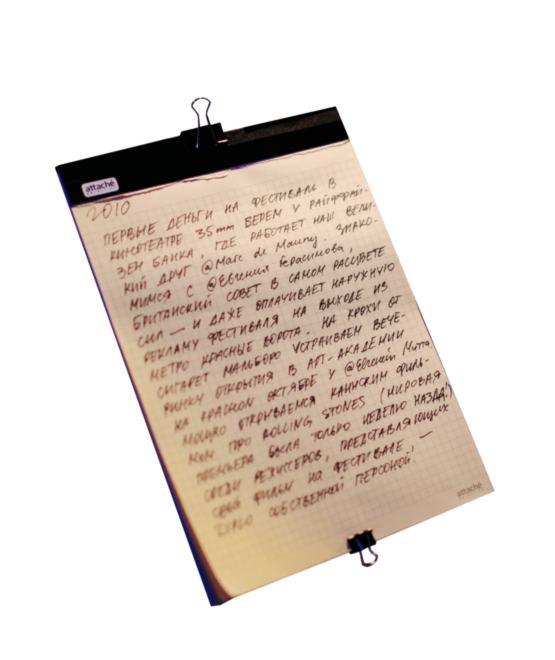 attaché
2010
ПЕРВЫЕ ДЕНЬГИ НА ФЕСТИВАЛЬ В
КИНОТЕАТРЕ 35mm БЕРЕМ У РАЙФФАЙ-
ЗЕН БАНКА, ГДЕ РАБОТАЕТ НАШ ВЕЛИ-
КИЙ ДРУГ @Marc de Mauny. ЗНАКО-
МИМСЯ С @Евгения Герасимова,
БРИТАНСКИЙ СОВЕТ В САМОМ РАСЦВЕТЕ
СИЛ — И ДАЖЕ ОПЛАЧИВАЕТ НАРУЖНУЮ
РЕКЛАМУ ФЕСТИВАЛЯ НА ВЫХОДЕ ИЗ
МЕТРО КРАСНЫЕ ВОРОТА. НА КРОХИ ОТ
СИГАРЕТ МАЛЬБОРО УСТРАИВАЕМ ВЕЧЕ-
РИНКУ ОТКРЫТИЯ В АРТ-АКАДЕМИИ
НА КРАСНОМ ОКТЯБРЕ У @Евгений Митта
МОЩНО ОТКРЫВАЕМСЯ КАННСКИМ ФИЛЬ-
МОМ ПРО ROLLING STONES (МИРОВАЯ
ПРЕМЬЕРА БЫЛА ТОЛЬКО НЕДЕЛЮ НАЗАД!)
СРЕДИ РЕЖИССЕРОВ, ПРЕДСТАВЛЯЮЩИХ
СВОЙ ФИЛЬМ НА ФЕСТИВАЛЕ, —
СОБСТВЕННОЙ ПЕРСОНОЙ.
attaché